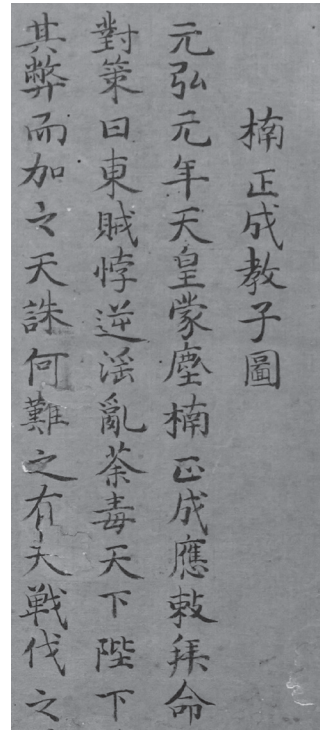 楠正成教子圖
元弘元年天皇蒙塵楠正成應敕拜命
對策曰東賊悖逆滛亂荼毒天下陛下
其弊而加之天誅何難之有夫戦伐之